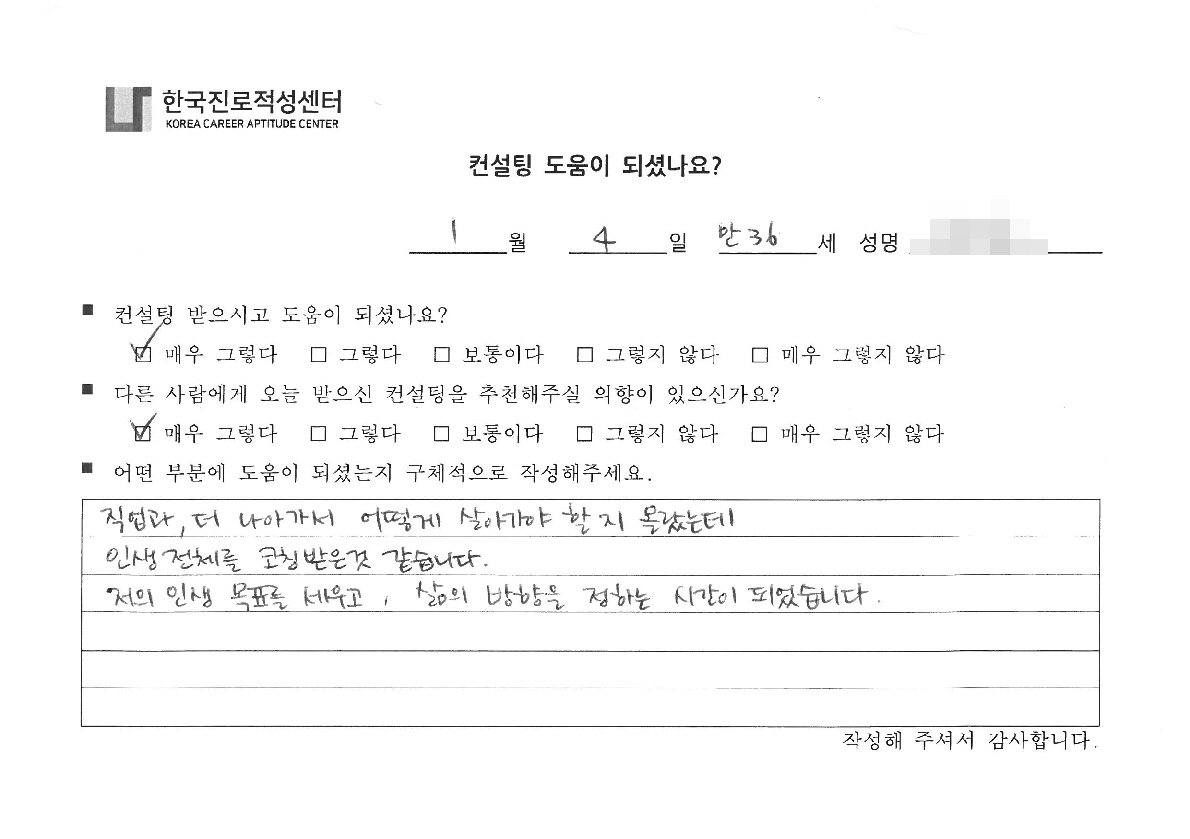 한국진로적성센터
KOREA CAREER APTITUDE CENTER
컨설팅 도움이 되셨나요?
1 월 4 일 만 36 세 성명
■ 컨설팅 받으시고 도움이 되셨나요?
☑ 매우 그렇다 □ 그렇다 □ 보통이다 □ 그렇지 않다 □ 매우 그렇지 않다
■ 다른 사람에게 오늘 받으신 컨설팅을 추천해주실 의향이 있으신가요?
☑ 매우 그렇다 □ 그렇다 □ 보통이다 □ 그렇지 않다 □ 매우 그렇지 않다
■ 어떤 부분에 도움이 되셨는지 구체적으로 작성해주세요.
직업과, 더 나아가서 어떻게 살아가야 할 지 몰랐는데
인생 전체를 코칭받은것 같습니다.
저의 인생 목표를 세우고, 삶의 방향을 정하는 시간이 되었습니다.
작성해 주셔서 감사합니다.